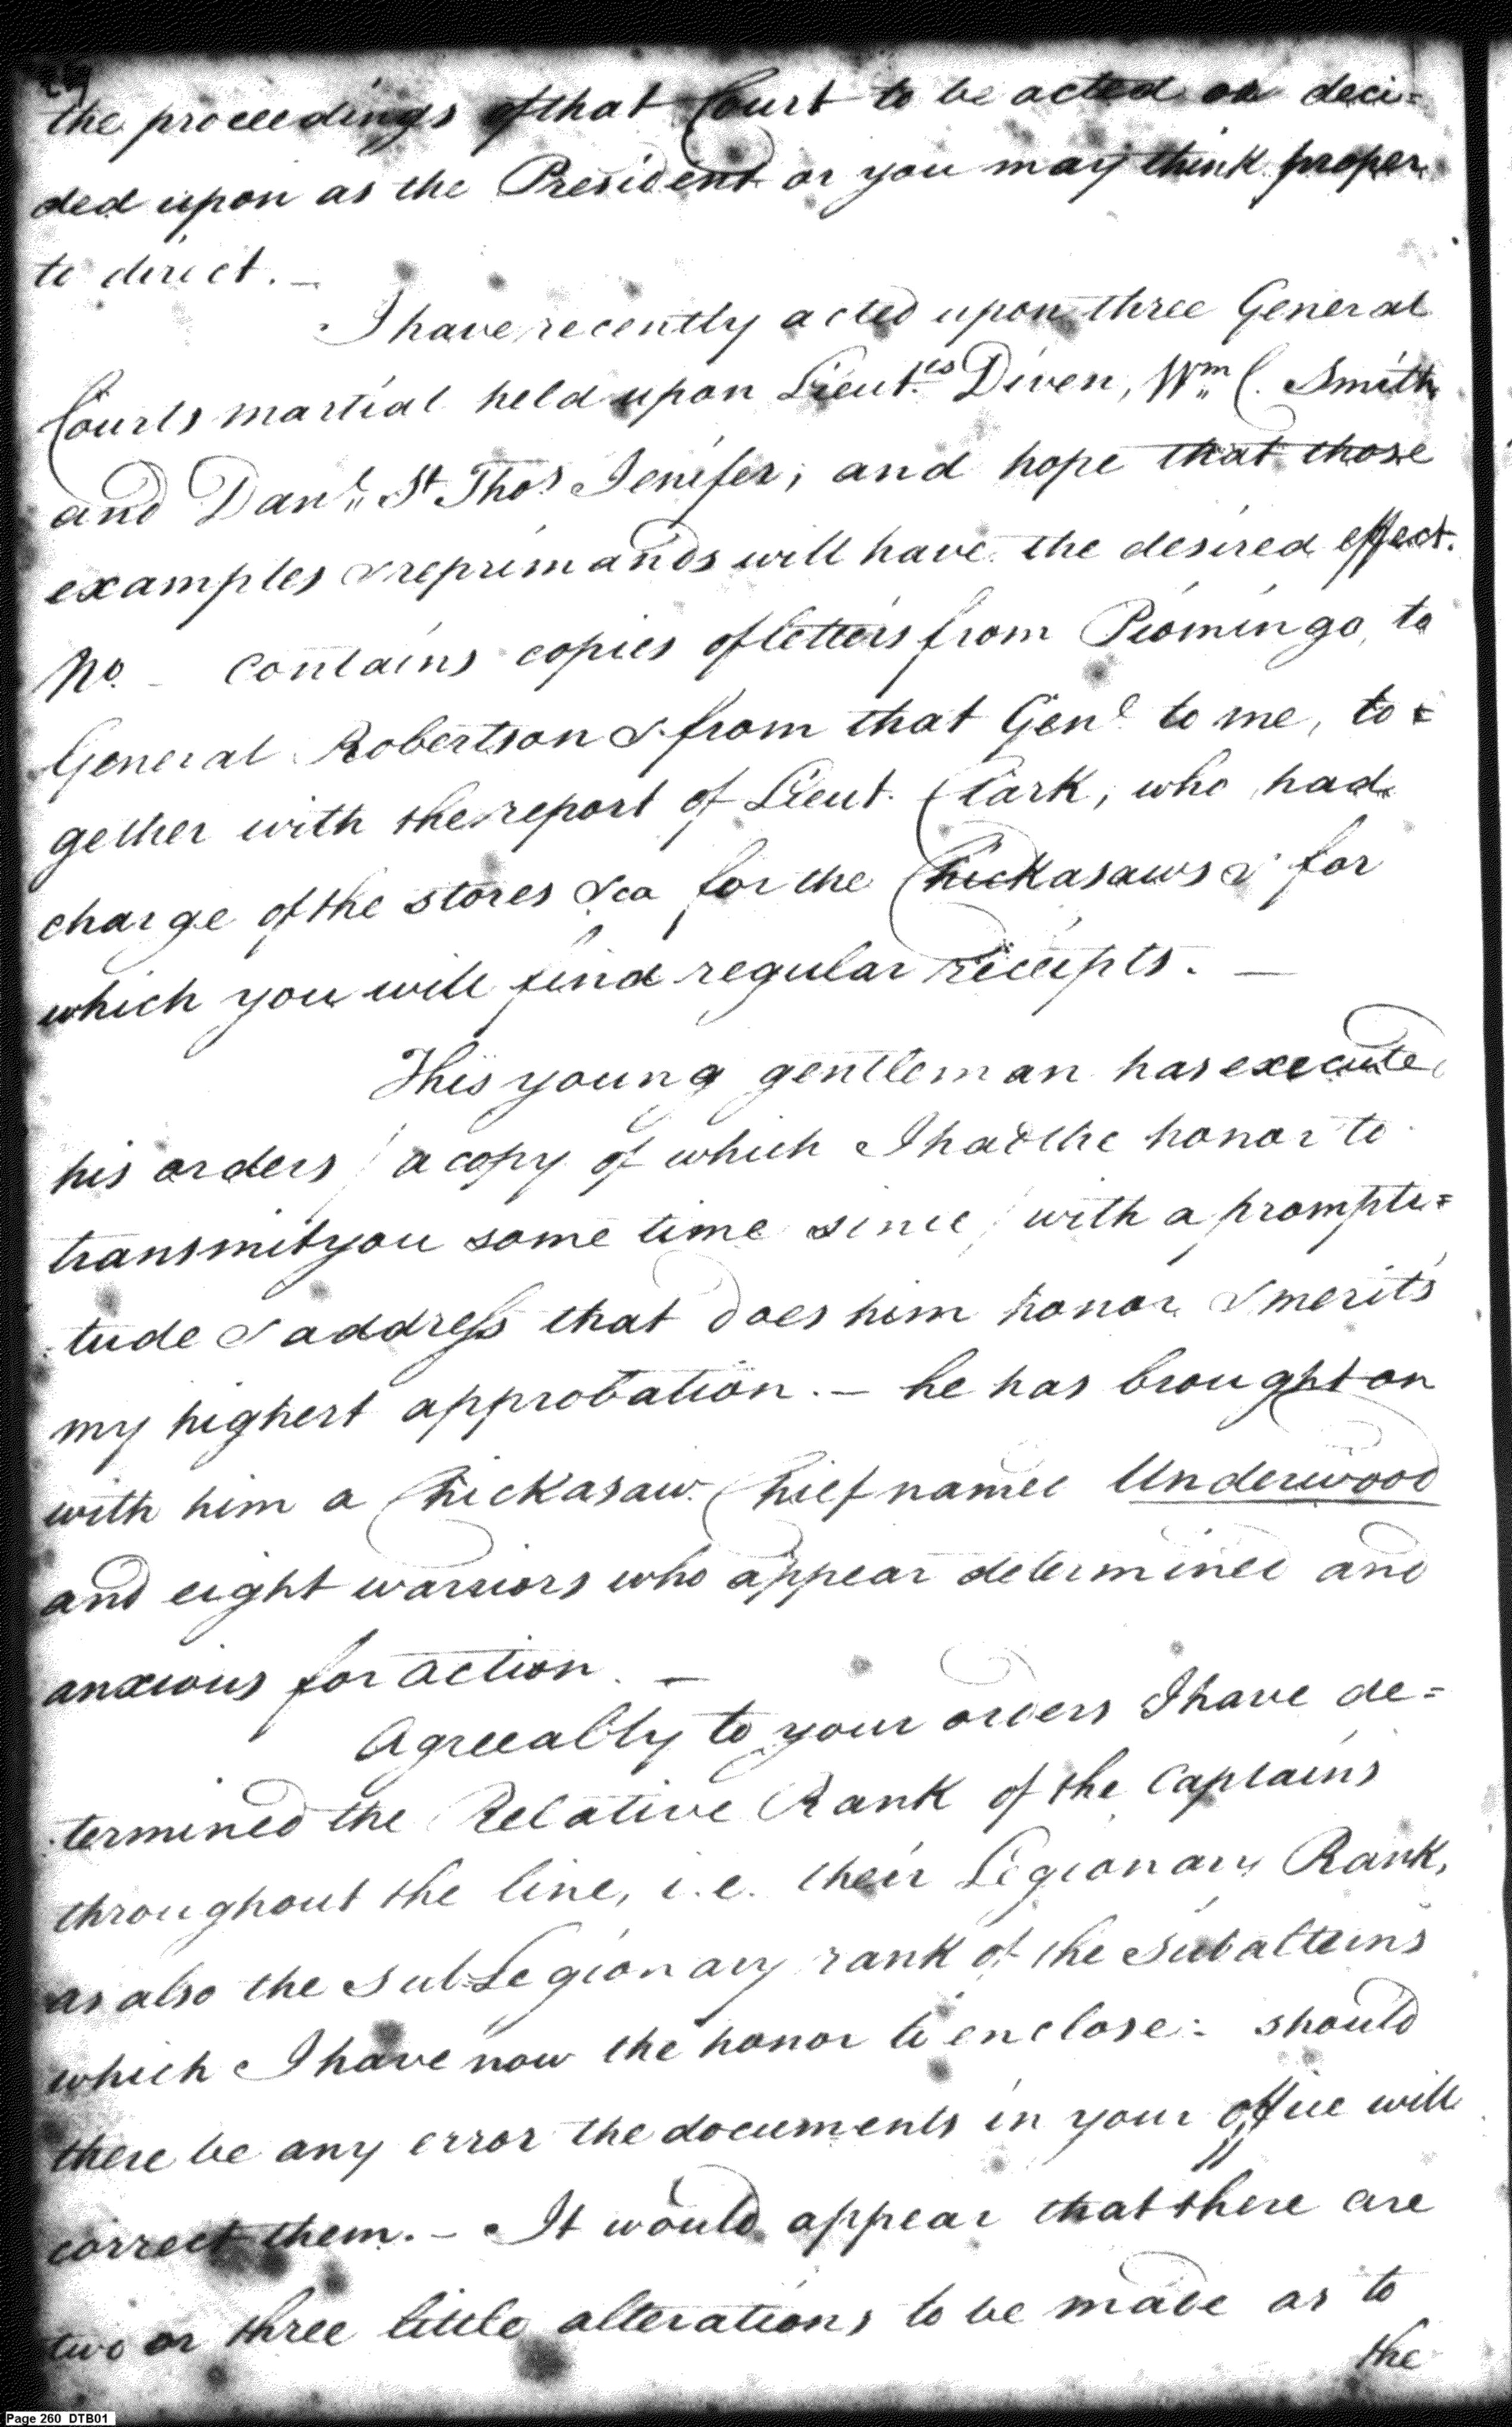 the proceedings of that Court to be acted or deci=
ded upon as the President or you may think proper
to direct. —
I have recently acted upon three General
Courts martial held upon Lieut.ts Diven, Wm C. Smith
and Danl St Thos Jenifer, and hope that those
examples & reprimands will have the desired effect.
No. – contains copies of letters from Piomingo, to
General Robertson & from that Genl to me, to=
gether with the report of Lieut. Clark, who had
charge of the stores &ca for the Chickasaws & for
which you will find regular receipts. —
This young gentleman has executed
his orders / a copy of which I had the honor to
transmit you some time since / with a prompti=
tude & address that does him honor & merits
my highest approbation. – he has brought on
with him a Chickasaw Chief named Underwood
and eight warriors who appear determined and
anxious for action. —
Agreeably to your orders I have de=
termined the Relative Rank of the Captains
throughout the line, i.e. their Legionary Rank,
as also the sub=Legionary rank of the subalterns
which I have now the honor to enclose: should
there be any error the documents in your office will
correct them. – It would appear that there are
two or three little alterations to be made as to
the
Page 260 DTB01